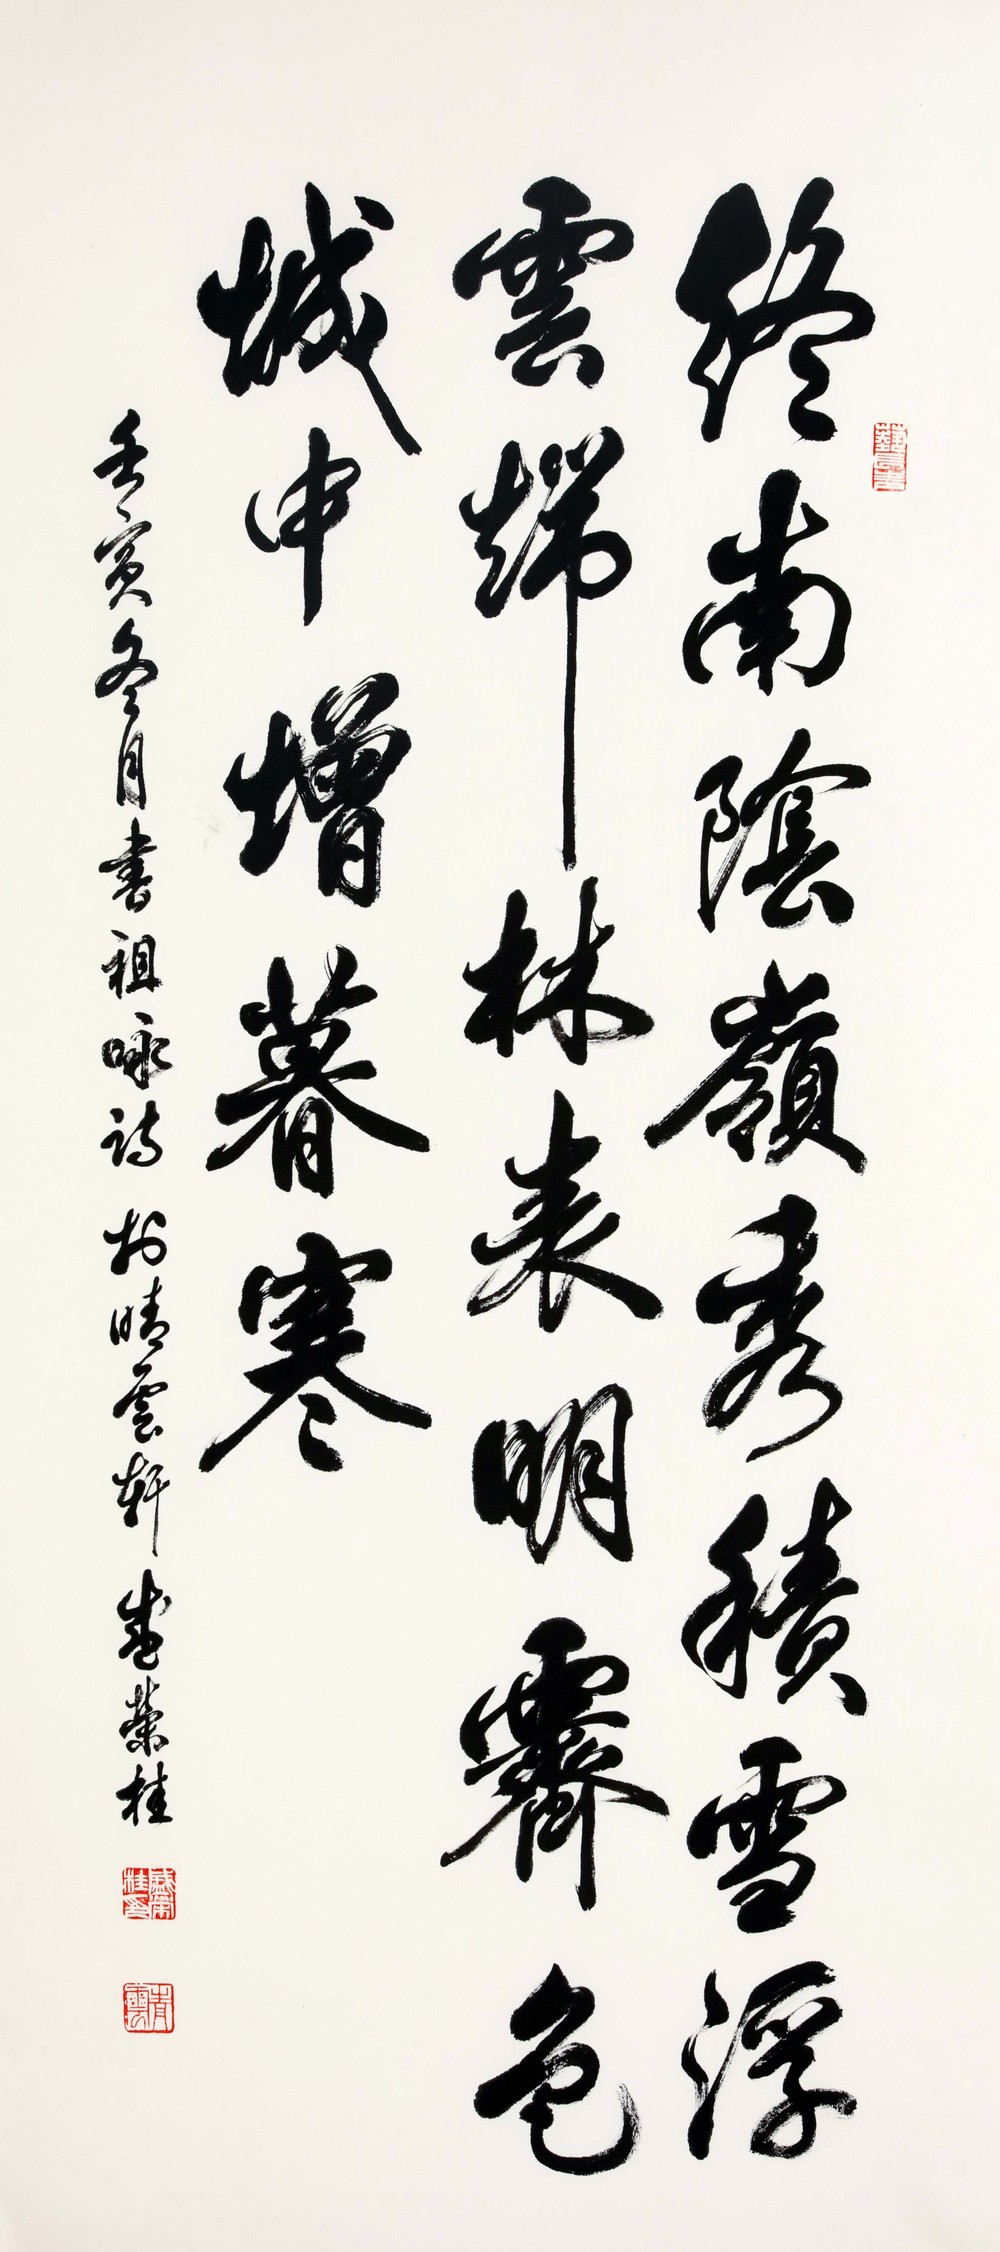 終南陰嶺秀積雪浮
雲端林表明霽色
城中增暮寒
壬寅冬月書祖咏詩於晴雲軒盛榮桂
盛榮桂印